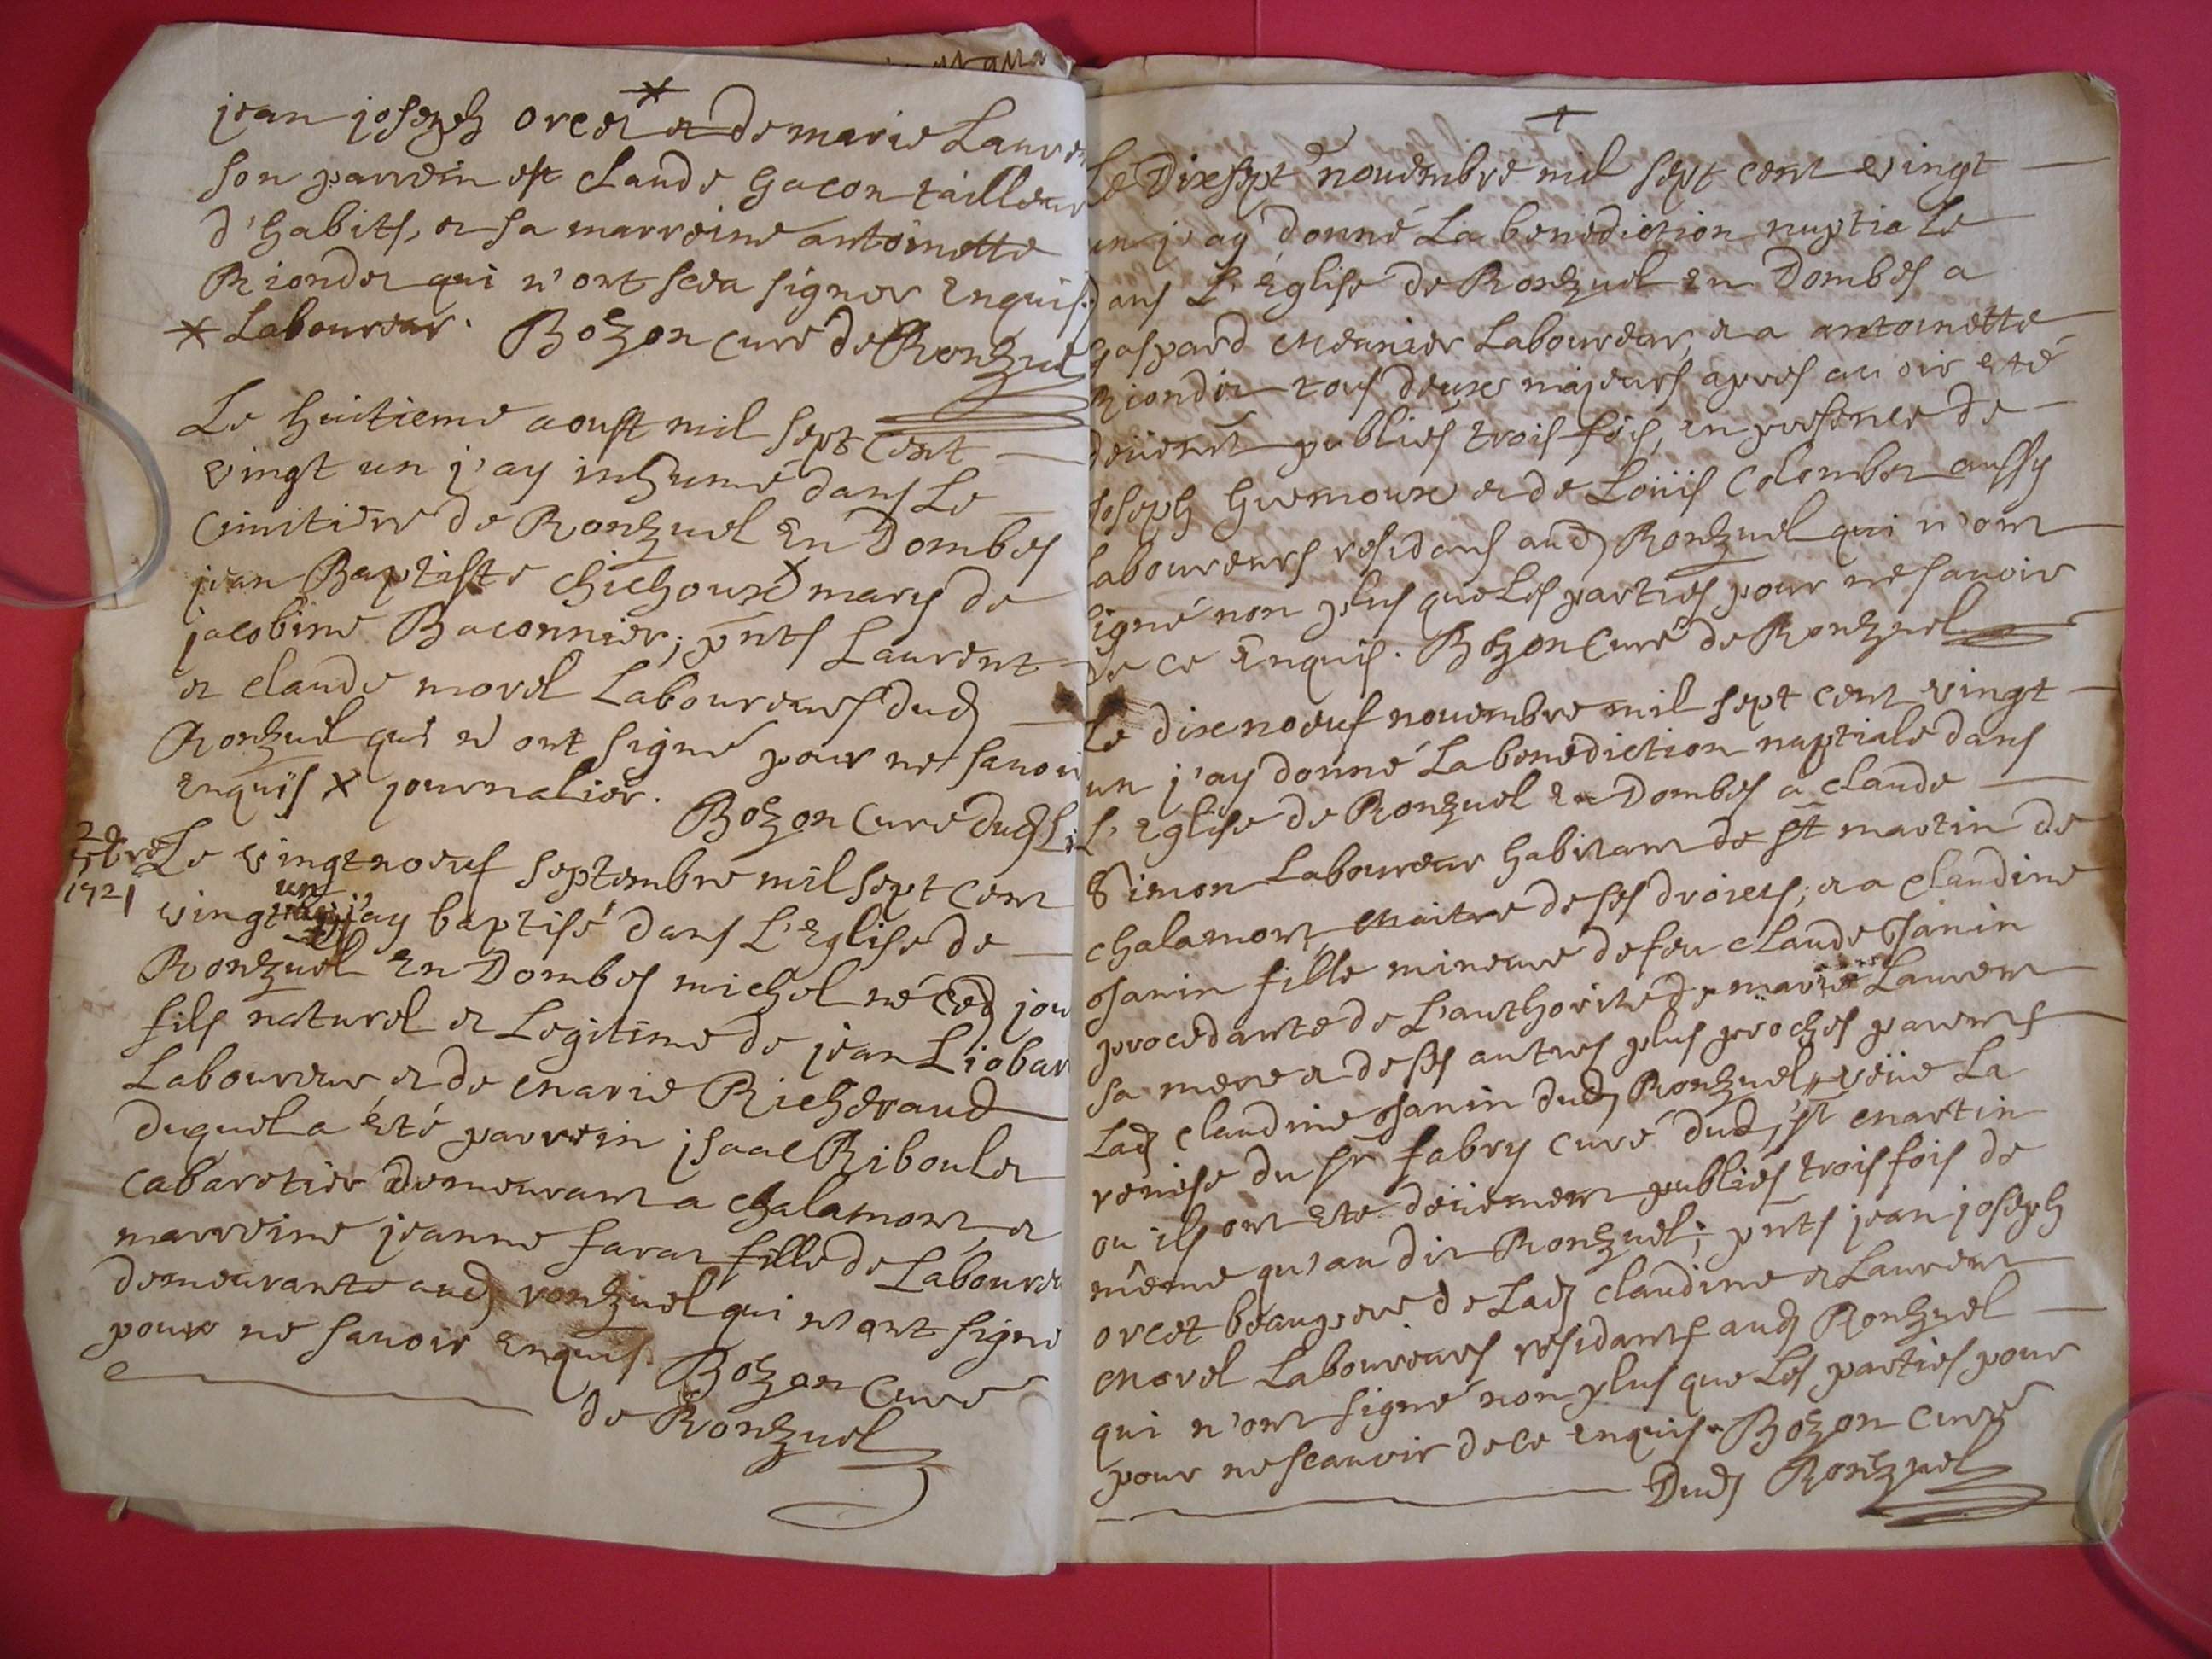 jean joseph orcet * et de marie Lauren
son parrein est claude Gacon tailleur
d'habits, et sa marreine antoinette
Riondet qui n'ont sceu signer Enquis.
* Laboureur. Bozon curé de Ronzuel
Le huitieme aoust mil sept cent
vingt un j'ay inhumé dans Le
Cimitiere de Ronzuel En Dombes
jean Baptiste chichoux x mary de
jacobine Baconnier; pnts Laurent
et claude morel Laboureurs dud
Ronzuel qui n'ont signé pour ne savoir
Enquis x journalier.
Bozon curé dud Li
29
7bre
1721
Le vingtnoeuf septembre mil sept cent
vingt un j'ay baptisé dans L'Eglise de
Ronzuel En Dombes michel né Ced jou
fils naturel et Legitime de jean Liobar
Laboureur et de marie Richeraud
duquel a Eté parrein isaac Riboulet
cabaretier demeurant a chalamont, et
marreine jeanne farat fille de Laboure
demeurante aud ronzuel qui n'ont signé
pour ne savoir Enquis. Bozon curé
de Ronzuel
+
Le Dixsept novembre mil sept cent vingt
un j'ay donné La benediction nuptiale
dans L'Eglise de Ronzuel En Dombes a
gaspard Meunier Laboureur, et a antoinette
Riondet tous deux majeurs apres avoir eté
deüement publiés trois fois, en presence de
joseph Guemoux et de Loüis Colombet aussy
Laboureurs residans aud Ronzuel qui n'ont
signé non plus que Les parties pour ne savoir
de ce Enquis. Bozon Curé de Ronzuel
Le dixnoeuf novembre mil sept cent vingt
un j'ay donné La benediction nuptiale dans
L'Eglise de Ronzuel En Dombes a claude
Simon Laboureur habitant de st martin de
chalamont, Maitre de ses droicts; et a claudine
Janin fille mineure de feu claude Janin
procedante de L'authorité de marie Laurent
sa mere et de ses autres plus proches parents
Lad claudine Janin dud Ronzuel, veüe La
remise du sr fabry curé dud, st Martin
ou ils ont eté deüement publiés trois fois de
même qu'au dit Ronzuel; pnts jean joseph
orcet beaupere de Lad claudine et Laurent
Morel Laboureurs residants aud Ronzuel
qui n'ont signé non plus que Les parties pour
pour ne scavoir de ce Enquis. Bozon curé
Dud Ronzuel